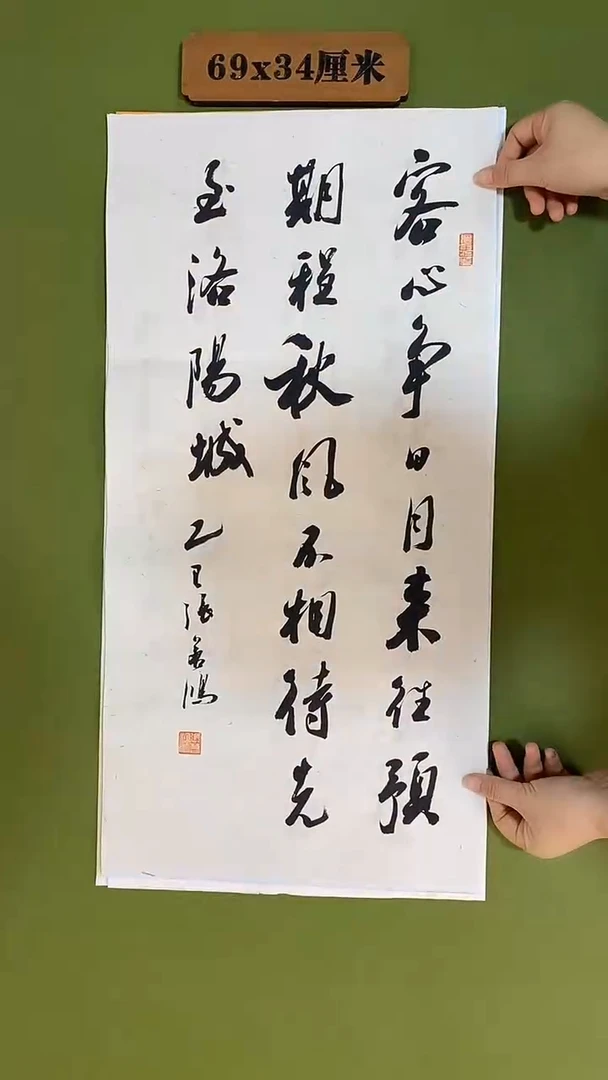 69x34厘米
客心争日月来往預
期程秋风不相待先
至洛陽城 乙巳張善鴻